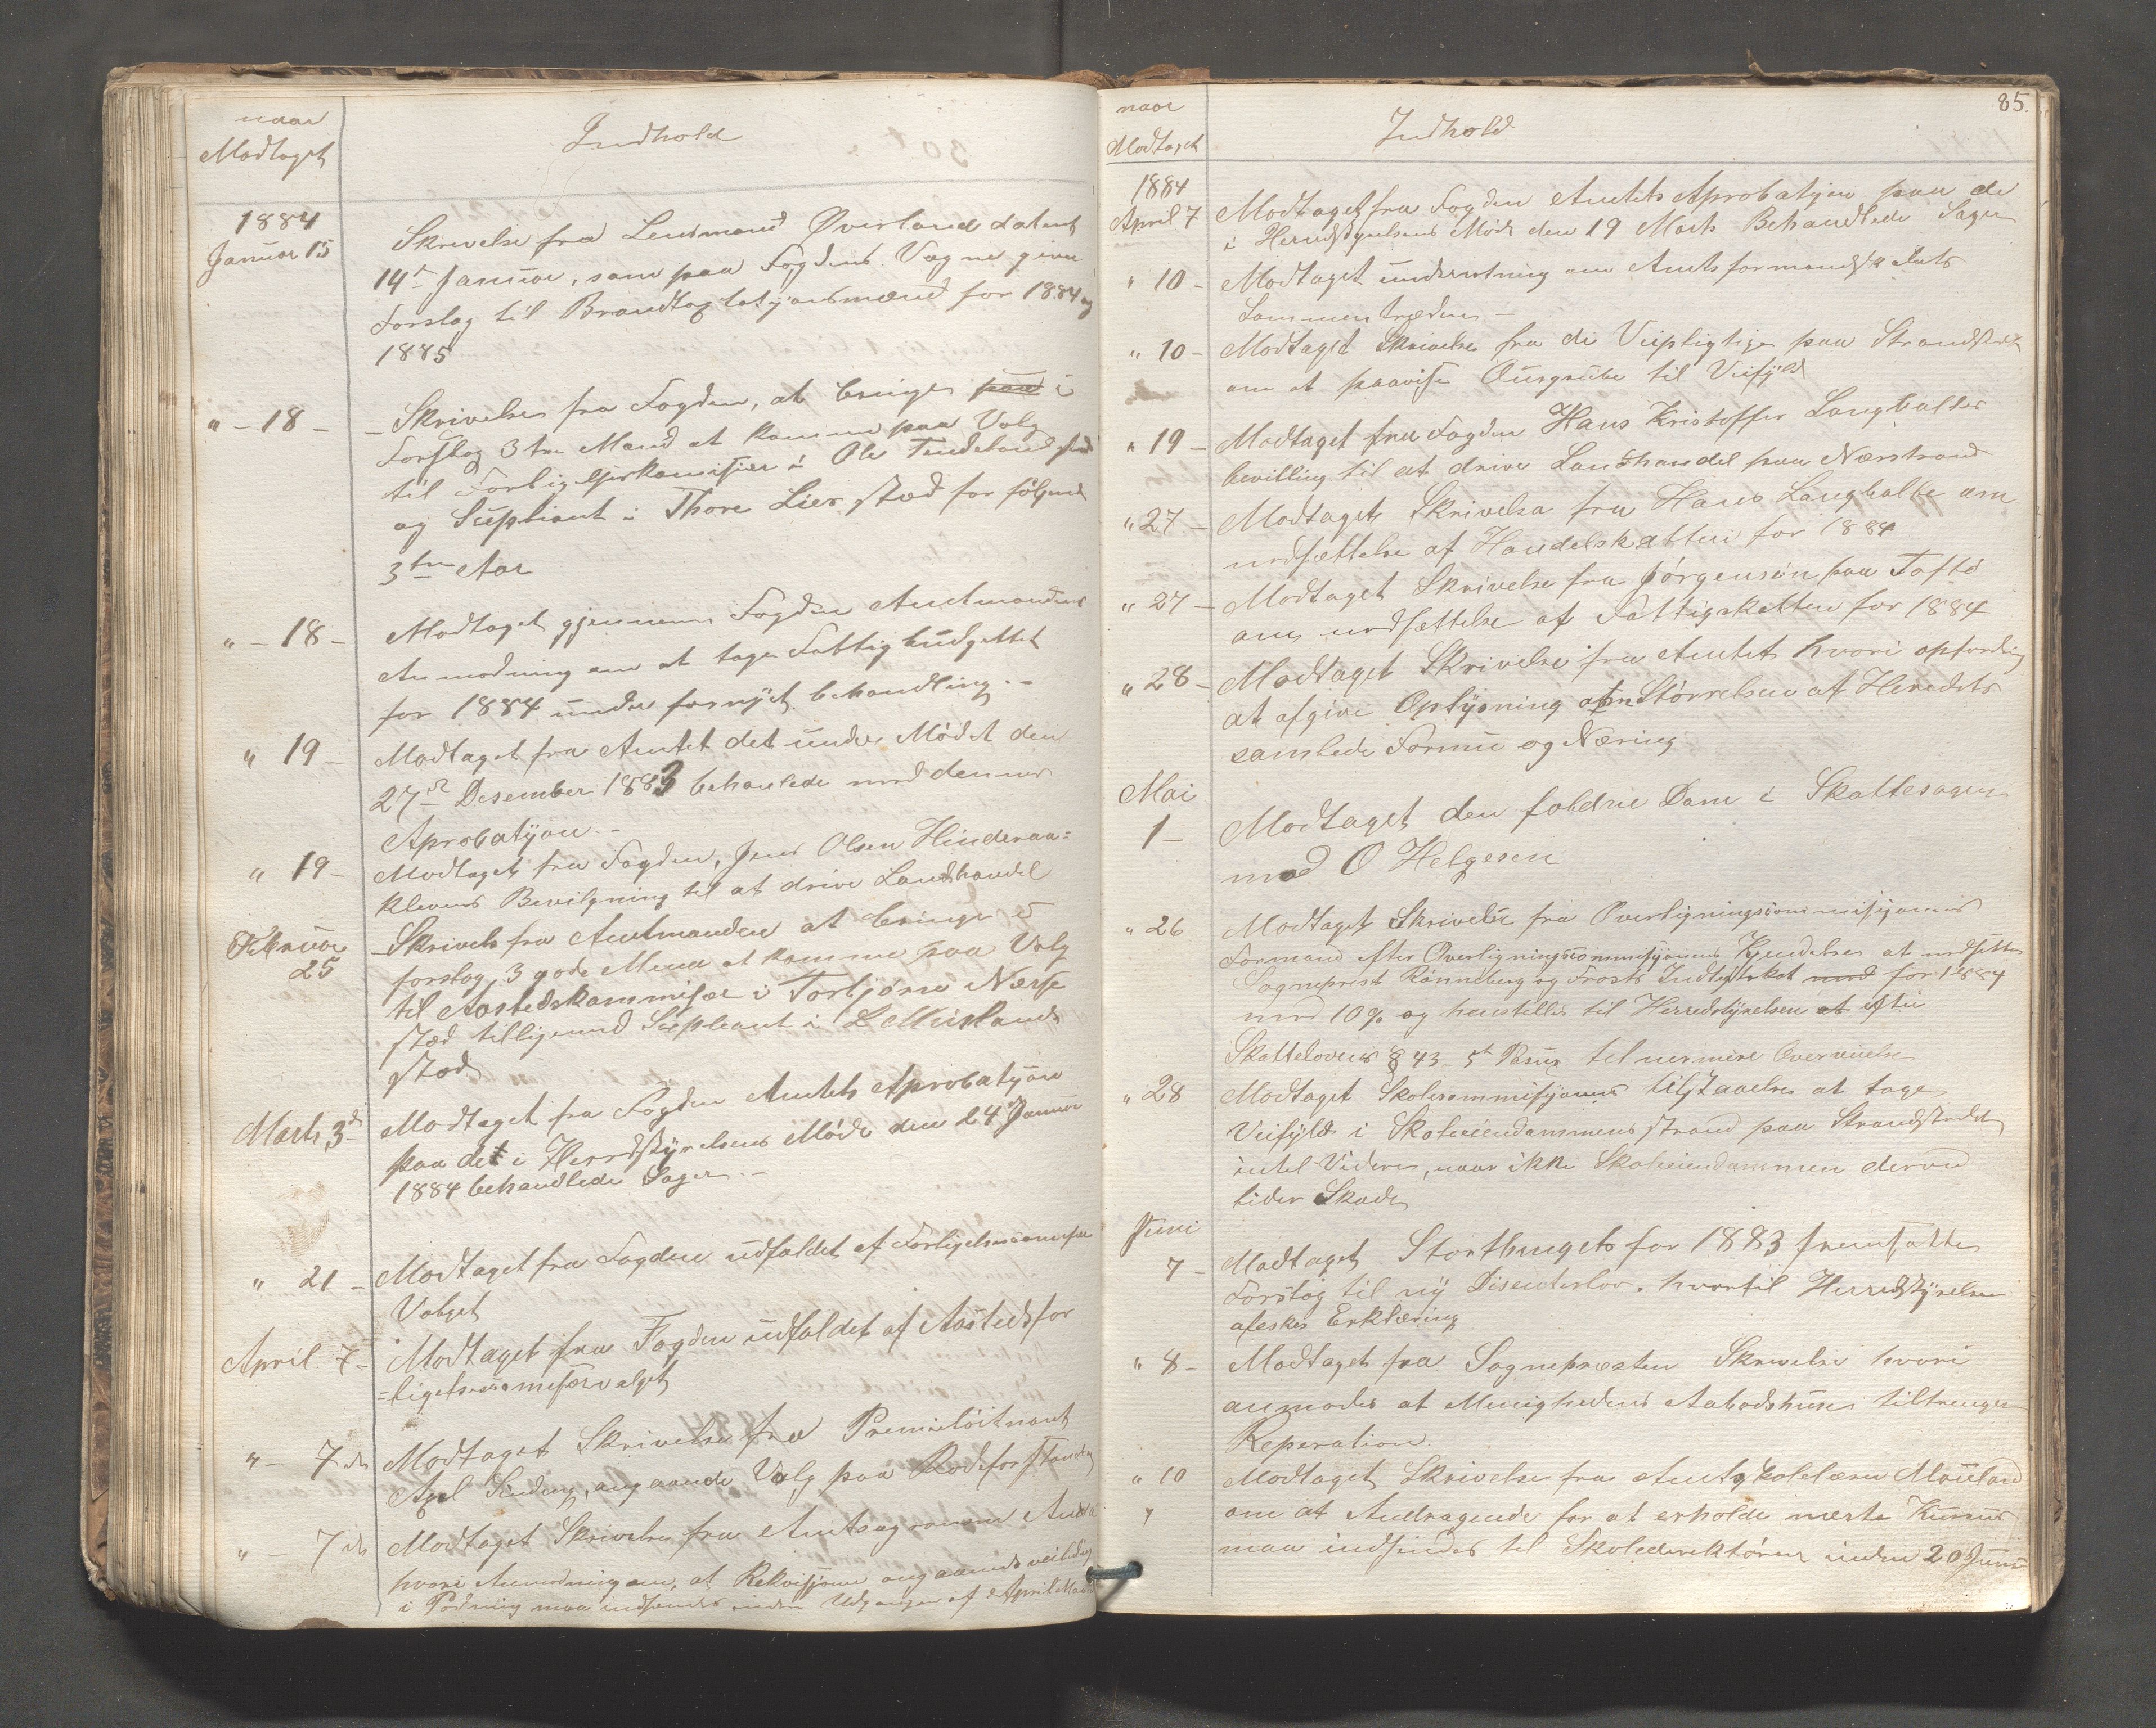 naar
Modtaget
Indhold
1884
Januar 15
Skrivelse fra Lensmand Øverland datert
14de Januar, som paa Fogdens Vægne giver
Forslag til Brandtagtstjonsmænd for 1884 og
1885
" - 18 -
Skrivelse fra Fogden, at bringe paa i
Forslag 3 tre Mænd at komme paa Valg
til Forligelseskomisær i Ole Tendelands sted
og Supliant i Thore Liers stæd for følgende
3tre Aar
" - 18 -
Modtaget gjennem Fogden Amtmandens
Anmodning om at tage Fattigbudgettet
for 1884 under fornyet behandling. -
" 19 -
Modtaget fra Amtet det under Mødet den
27de Desember 1883 behanlede med dennes
Aprobatjon. -
" 19 -
Modtaget fra Fogden, Jens Olsen Hinderaa=
klevens Bevilgning til at drive Landhandel
Februar
25
Skrivels fra Amtmanden at bringe i
forslag 3 gode Mend at komme paa Valg
til Aastedskommisær i Torbjørn Næsse
stæd tilligemed Supleant i L Meislands
stæd
Marts 3de
Modtaget fra Fogden Amtets Aprobatjon
paa det i Herredstyrelsens Møde den 24de Januar
1884 behandlede Sager. -
" 21 -
Modtaget fra Fogden udfaldet af Forligelsescomisær
Valget
April 7 -
Modtaget fra Fogden udfaldet af Aastedsfor
=ligelsescomisærvalget
" - 7 de
Modtaget Skrivelse fra Premierløitnant
Axel Sinding, angaaende Valg paa Rodeforstander
" - 7 de
Modtaget Skrivelse fra Amtsagronom
hvori Anmodning om, at Rekvisjoner angaaende veiledning
i maa indsendes inden Udgangen af April Maaned
naar
Modtaget
Indhold
85.
1884
April 7
Modtaget fra Fogden Amtets Aprobatjon paa de
i Herredstyrelsens Møde den 19 Marts Behandlede Sager
" 10 -
Modtaget underretning om Amtsformandskabets
Sammentræden -
" 10 -
Modtaget Skrivelse fra de Veipligtige paa Strandstedet
om at paavise Ourgrube til Veifyld
" 19 -
Modtaget fra Fogden Hans Kristoffer Langballes
bevilling til at drive Landhandel paa Nærstrand
" 27 -
Modtaget Skrivelse fra Hans Langballe om
nedsættelse af Handelskatten for 1884
" 27 -
Modtaget Skrivelse fra Jørgensen paa Toftø
om nedsættelse af Fattigskatten for 1884
" 28 -
Modtaget Skrivelse fra Amtet hvori opfording
at afgive Oplysning om Størrelsen af Heredets
samlede Formue og Næring
Mai
1 -
Modtaget den faldne Dom i Skattesagen
med O Helgesen
" 26
Modtaget Skrivelse fra Overligningscommisjonens
Formand efter Overligningscommisjonens Kjendelse at nedsette
Sogneprest Rønneberg og Frosts Indtegtskat med for 1884
med 10% og henstilles til Herredstyrelsen at efter
Skattelovens § 43 - 5te Pasus tel nermere Overveielse
" 28
Modtaget Skolecommisjonens tilstaaelse at tage
Veifyld i Skoleeiendommens strand paa Strandstedet
intel Videre, naar ikke Skoleeiendommen derved
lider Skade
Juni
7 -
Modtaget Storthingets for 1883 fremsatte
Forslag til ny Disenterlov. hvortil Herredstyrelsen
afeskes Erklæring
" 8 -
Modtaget fra Sognepræsten Skrivelse hvori
anmodes at Menighedens Aabodshuse tiltrenger
Reperation.
" 10
Modtaget Skrivelse fra Amtsskolelærer Mæland
"
om at Andragende for at erholde neste Kursus
maa indsendes til Skoledirektøren inden 20 Juni